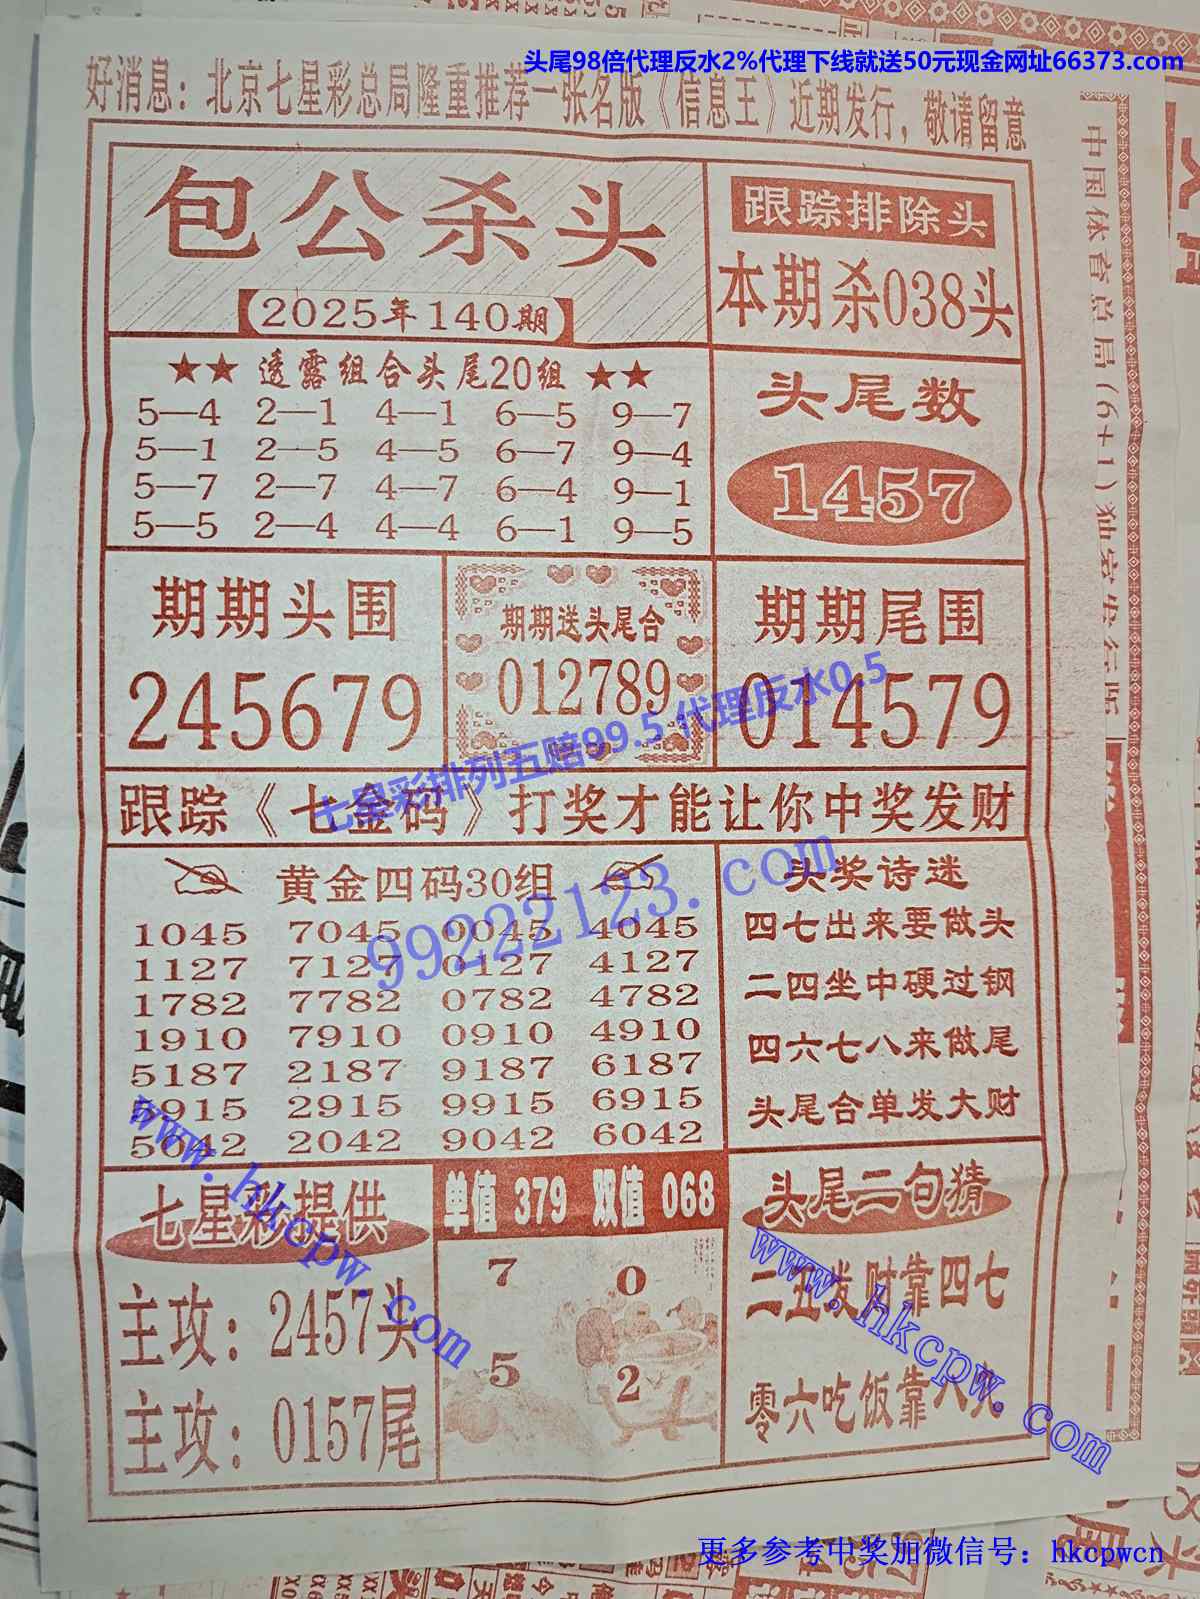 头尾98倍代理反水2%代理下线就送50元现金网址66373.com
好消息：北京七星彩总局隆重推荐一张名版《信息王》近期发行，敬请留意
包公杀头
2025年140期
跟踪排除头
本期杀038头
★★ 透露组合头尾20组 ★★
5—4 2—1 4—1 6—5 9—7
5—1 2—5 4—5 6—7 9—4
5—7 2—7 4—7 6—4 9—1
5—5 2—4 4—4 6—1 9—5
头尾数
1457
期期头围
245679
期期送头尾合
012789
期期尾围
014579
七星彩排列五赔99.5 代理反水0.5
跟踪《七金码》打奖才能让你中奖发财
99222123.com
黄金四码30组
1045 7045 0045 4045
1127 7127 0127 4127
1782 7782 0782 4782
1910 7910 0910 4910
5187 2187 9187 6187
5915 2915 9915 6915
5042 2042 9042 6042
头奖诗迷
四七出来要做头
二四坐中硬过钢
四六七八来做尾
头尾合单发大财
七星彩提供
主攻：2457头
主攻：0157尾
www.hkcpw.com
单值 379 双值 068
7 0
5 2
头尾二句猜
二五发财靠四七
零六吃饭靠八九
www.hkcpw.com
中国体育总局(6+1)独家发行版
更多参考中奖加微信号：hkcpwcn